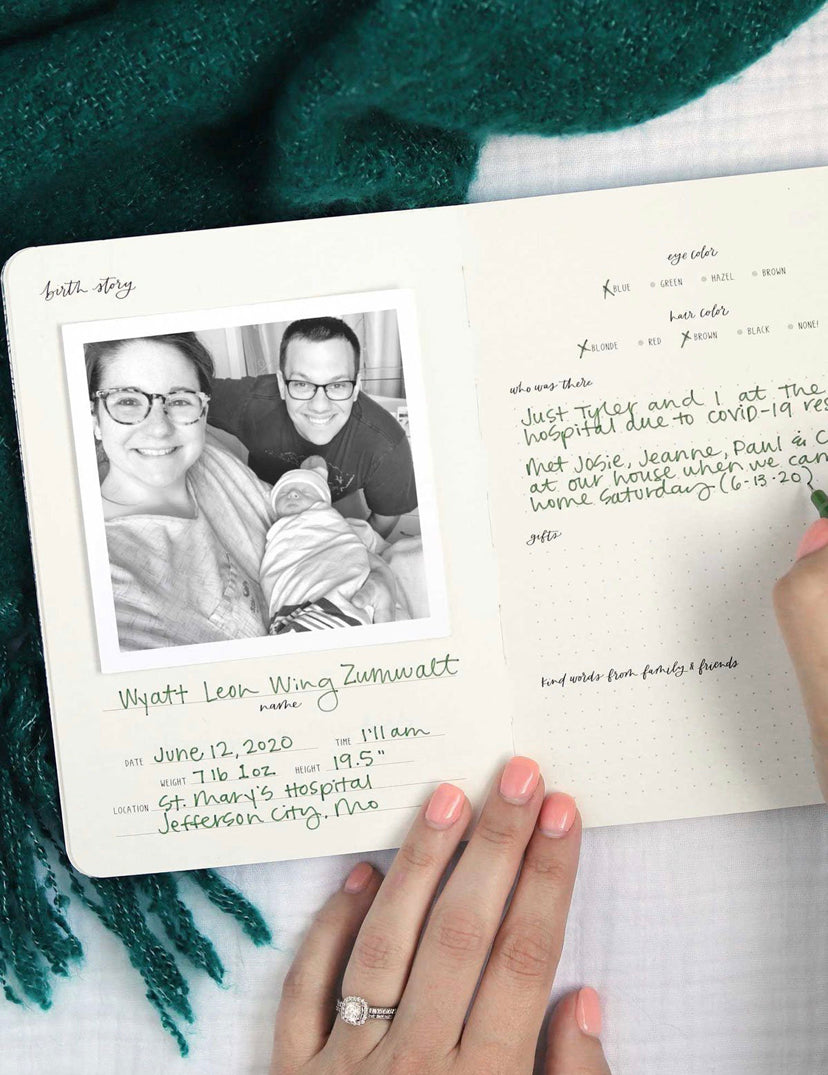 birth story
Wyatt Leon Wing Zumwalt
name
DATE June 12, 2020 TIME 1:11 am
WEIGHT 7 lb 1oz HEIGHT 19.5"
LOCATION St. Mary's Hospital
Jefferson City, Mo
eye color
X BLUE GREEN HAZEL BROWN
hair color
X BLONDE RED X BROWN BLACK NONE!
who was there
Just Tyler and I at The
hospital due to COVID-19 res
Met Josie, Jeanne, Paul & C
at our house when we cam
home Saturday (6-13-20)
gifts
kind words from family & friends